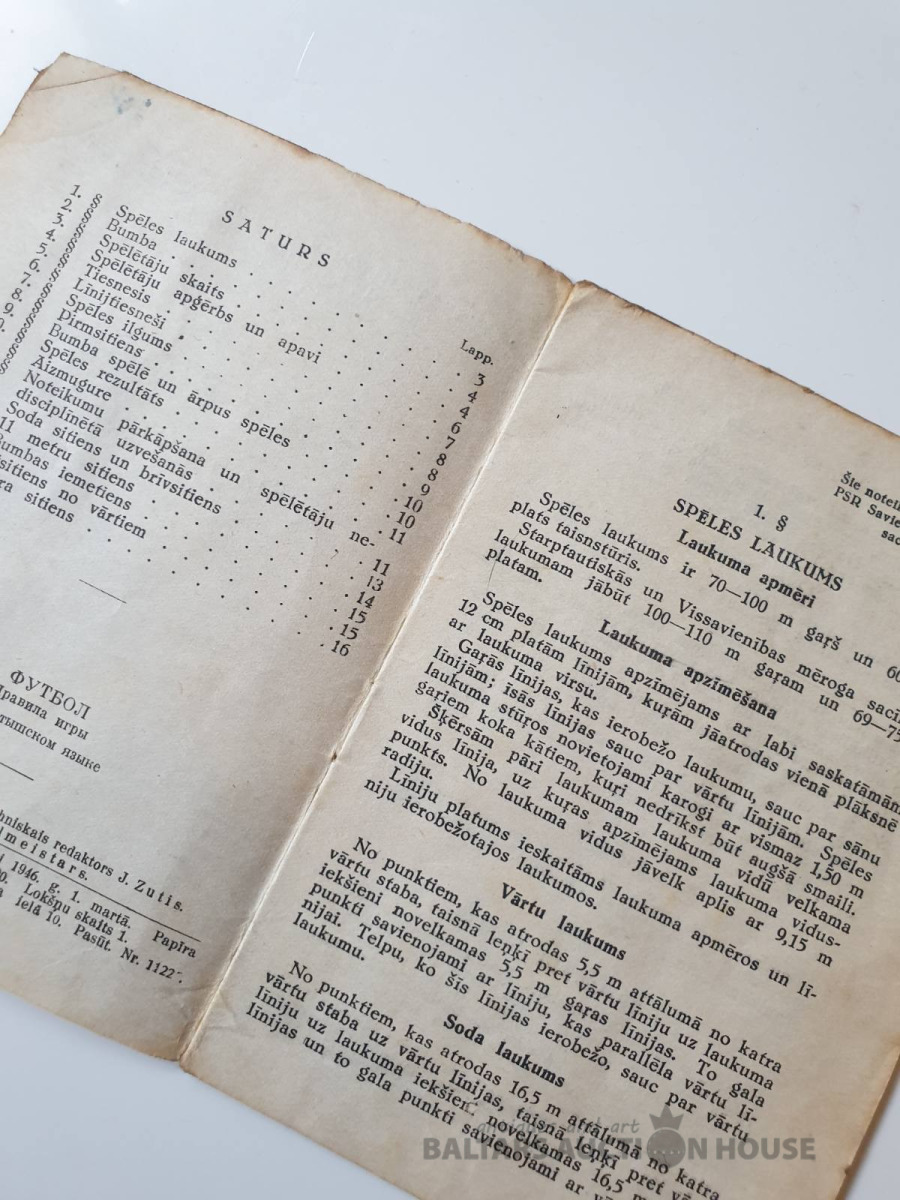 SATURS
Lapp.
1. § Spēles laukums . . . 3
2. § Bumba . . . 4
3. § Spēlētāju skaits . . . 4
4. § Spēlētāju apģērbs un apavi . . . 6
5. § Tiesnesis . . . 7
6. § Līnijtiesneši . . . 8
7. § Spēles ilgums . . . 8
8. § Pirmsitiens . . . 9
9. § Bumba spēlē un ārpus spēles . . . 10
Spēles rezultāts . . . 10
Aizmugure . . . 11
Noteikumu pārkāpšana un spēlētāju ne-
disciplinētā uzvešanās . . . 11
Soda sitiens un brīvsitiens . . . 13
11 metru sitiens . . . 14
Bumbas iemetiens . . . 15
sitiens no vārtiem . . . 15
sitiens . . . 16
ФУТБОЛ
Правила игры
языке
redaktors J. Zutis.
meistars.
1946. g. 1. martā. Papīra
Lokšņu skaits 1.
ielā 10. Pasūt. Nr. 1122
Šie
PSR
1. §
SPĒLES LAUKUMS
Laukuma apmēri
Spēles laukums ir 70—100 m garš un 60
plats taisnstūris.
Starptautiskās un Vissavienības mēroga
laukumam jābūt 100—110 m garam un 69—75
platam.
Laukuma apzīmēšana
Spēles laukums apzīmējams ar labi saskatāmām
12 cm platām līnijām, kuŗām jāatrodas vienā plāksnē
ar laukuma virsu.
Gaŗās līnijas, kas ierobežo laukumu, sauc par sānu
līnijām; īsās līnijas sauc par vārtu līnijām. Spēles
laukuma stūŗos novietojami karogi ar vismaz 1,50 m
gaŗiem koka kātiem, kuŗi nedrīkst būt augšā smaili.
Šķērsām pāri laukumam laukuma vidū velkama
vidus līnija, uz kuŗas apzīmējams laukuma vidus-
punkts. No laukuma vidus jāvelk aplis ar 9,15 m
radiju.
Līniju platums ieskaitāms laukuma apmēros un lī-
niju ierobežotajos laukumos.
Vārtu laukums
No punktiem, kas atrodas 5,5 m attālumā no katra
vārtu staba, taisnā leņķī pret vārtu līniju uz laukuma
iekšieni novelkamas 5,5 m gaŗas līnijas. To gala
punkti savienojami ar līniju, kas parallēla vārtu lī-
nijai. Telpu, ko šīs līnijas ierobežo, sauc par vārtu
laukumu.
Soda laukums
No punktiem, kas atrodas 16,5 m attālumā no katra
vārtu staba uz vārtu līnijas, taisnā leņķī pret vārtu
līniju uz laukuma iekšieni novelkamas 16,5 m
līnijas un to gala punkti savienojami ar
antique and art
BALTARS AUCTION HOUSE